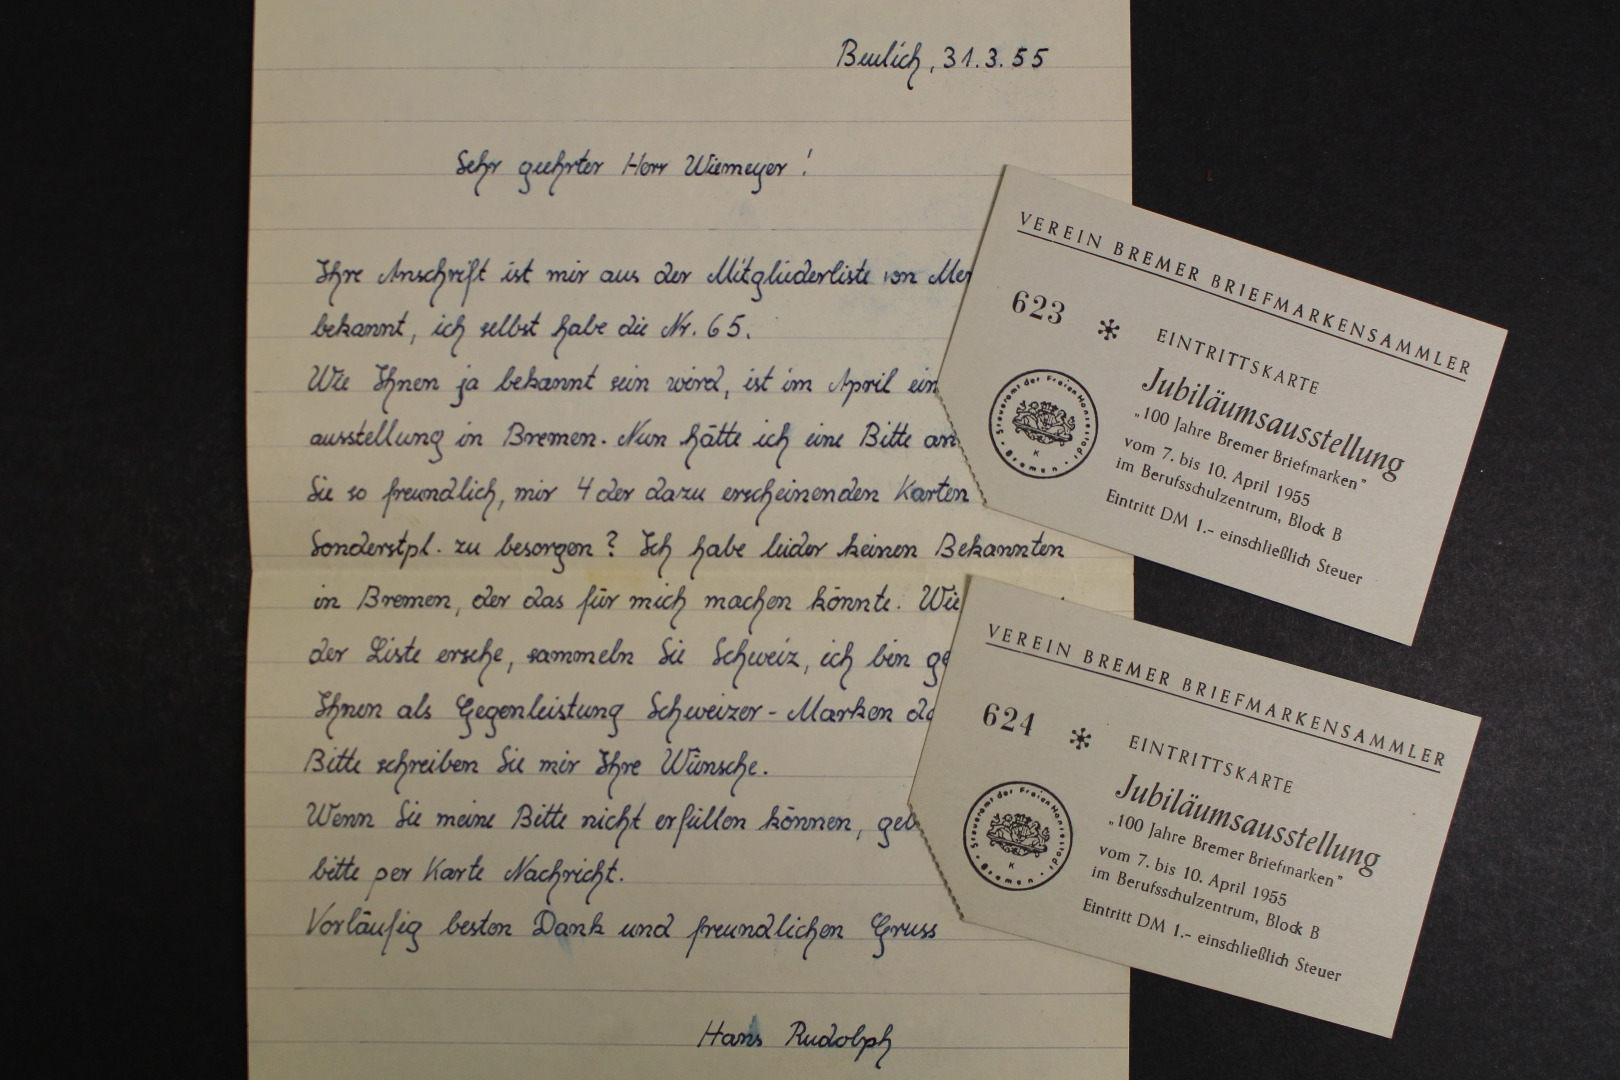 Beulich, 31.3.55
Sehr geehrter Herr Wiemeyer!
Ihre Anschrift ist mir aus der Mitgliederliste von
bekannt, ich selbst habe die Nr. 65.
Wie Ihnen ja bekannt sein wird, ist im April ein
ausstellung in Bremen. Nun hätte ich eine Bitte an
Sie so freundlich, mir 4 der dazu erscheinenden Karten
Sonderstpl. zu besorgen? Ich habe leider keinen Bekannten
in Bremen, der das für mich machen könnte. Wie
der Liste ersehe, sammeln Sie Schweiz, ich bin
Ihnen als Gegenleistung Schweizer-Marken
Bitte schreiben Sie mir Ihre Wünsche.
Wenn Sie meine Bitte nicht erfüllen können,
bitte per Karte Nachricht.
Vorläufig besten Dank und freundlichen Gruss
Hans Rudolph
VEREIN BREMER BRIEFMARKENSAMMLER
623 *
EINTRITTSKARTE
Jubiläumsausstellung
„100 Jahre Bremer Briefmarken"
vom 7. bis 10. April 1955
im Berufsschulzentrum, Block B
Eintritt DM 1.- einschließlich Steuer
Steueramt der Freien Hansestadt
Bremen
K
VEREIN BREMER BRIEFMARKENSAMMLER
624 *
EINTRITTSKARTE
Jubiläumsausstellung
„100 Jahre Bremer Briefmarken"
vom 7. bis 10. April 1955
im Berufsschulzentrum, Block B
Eintritt DM 1.- einschließlich Steuer
Steueramt der Freien Hansestadt
Bremen
K